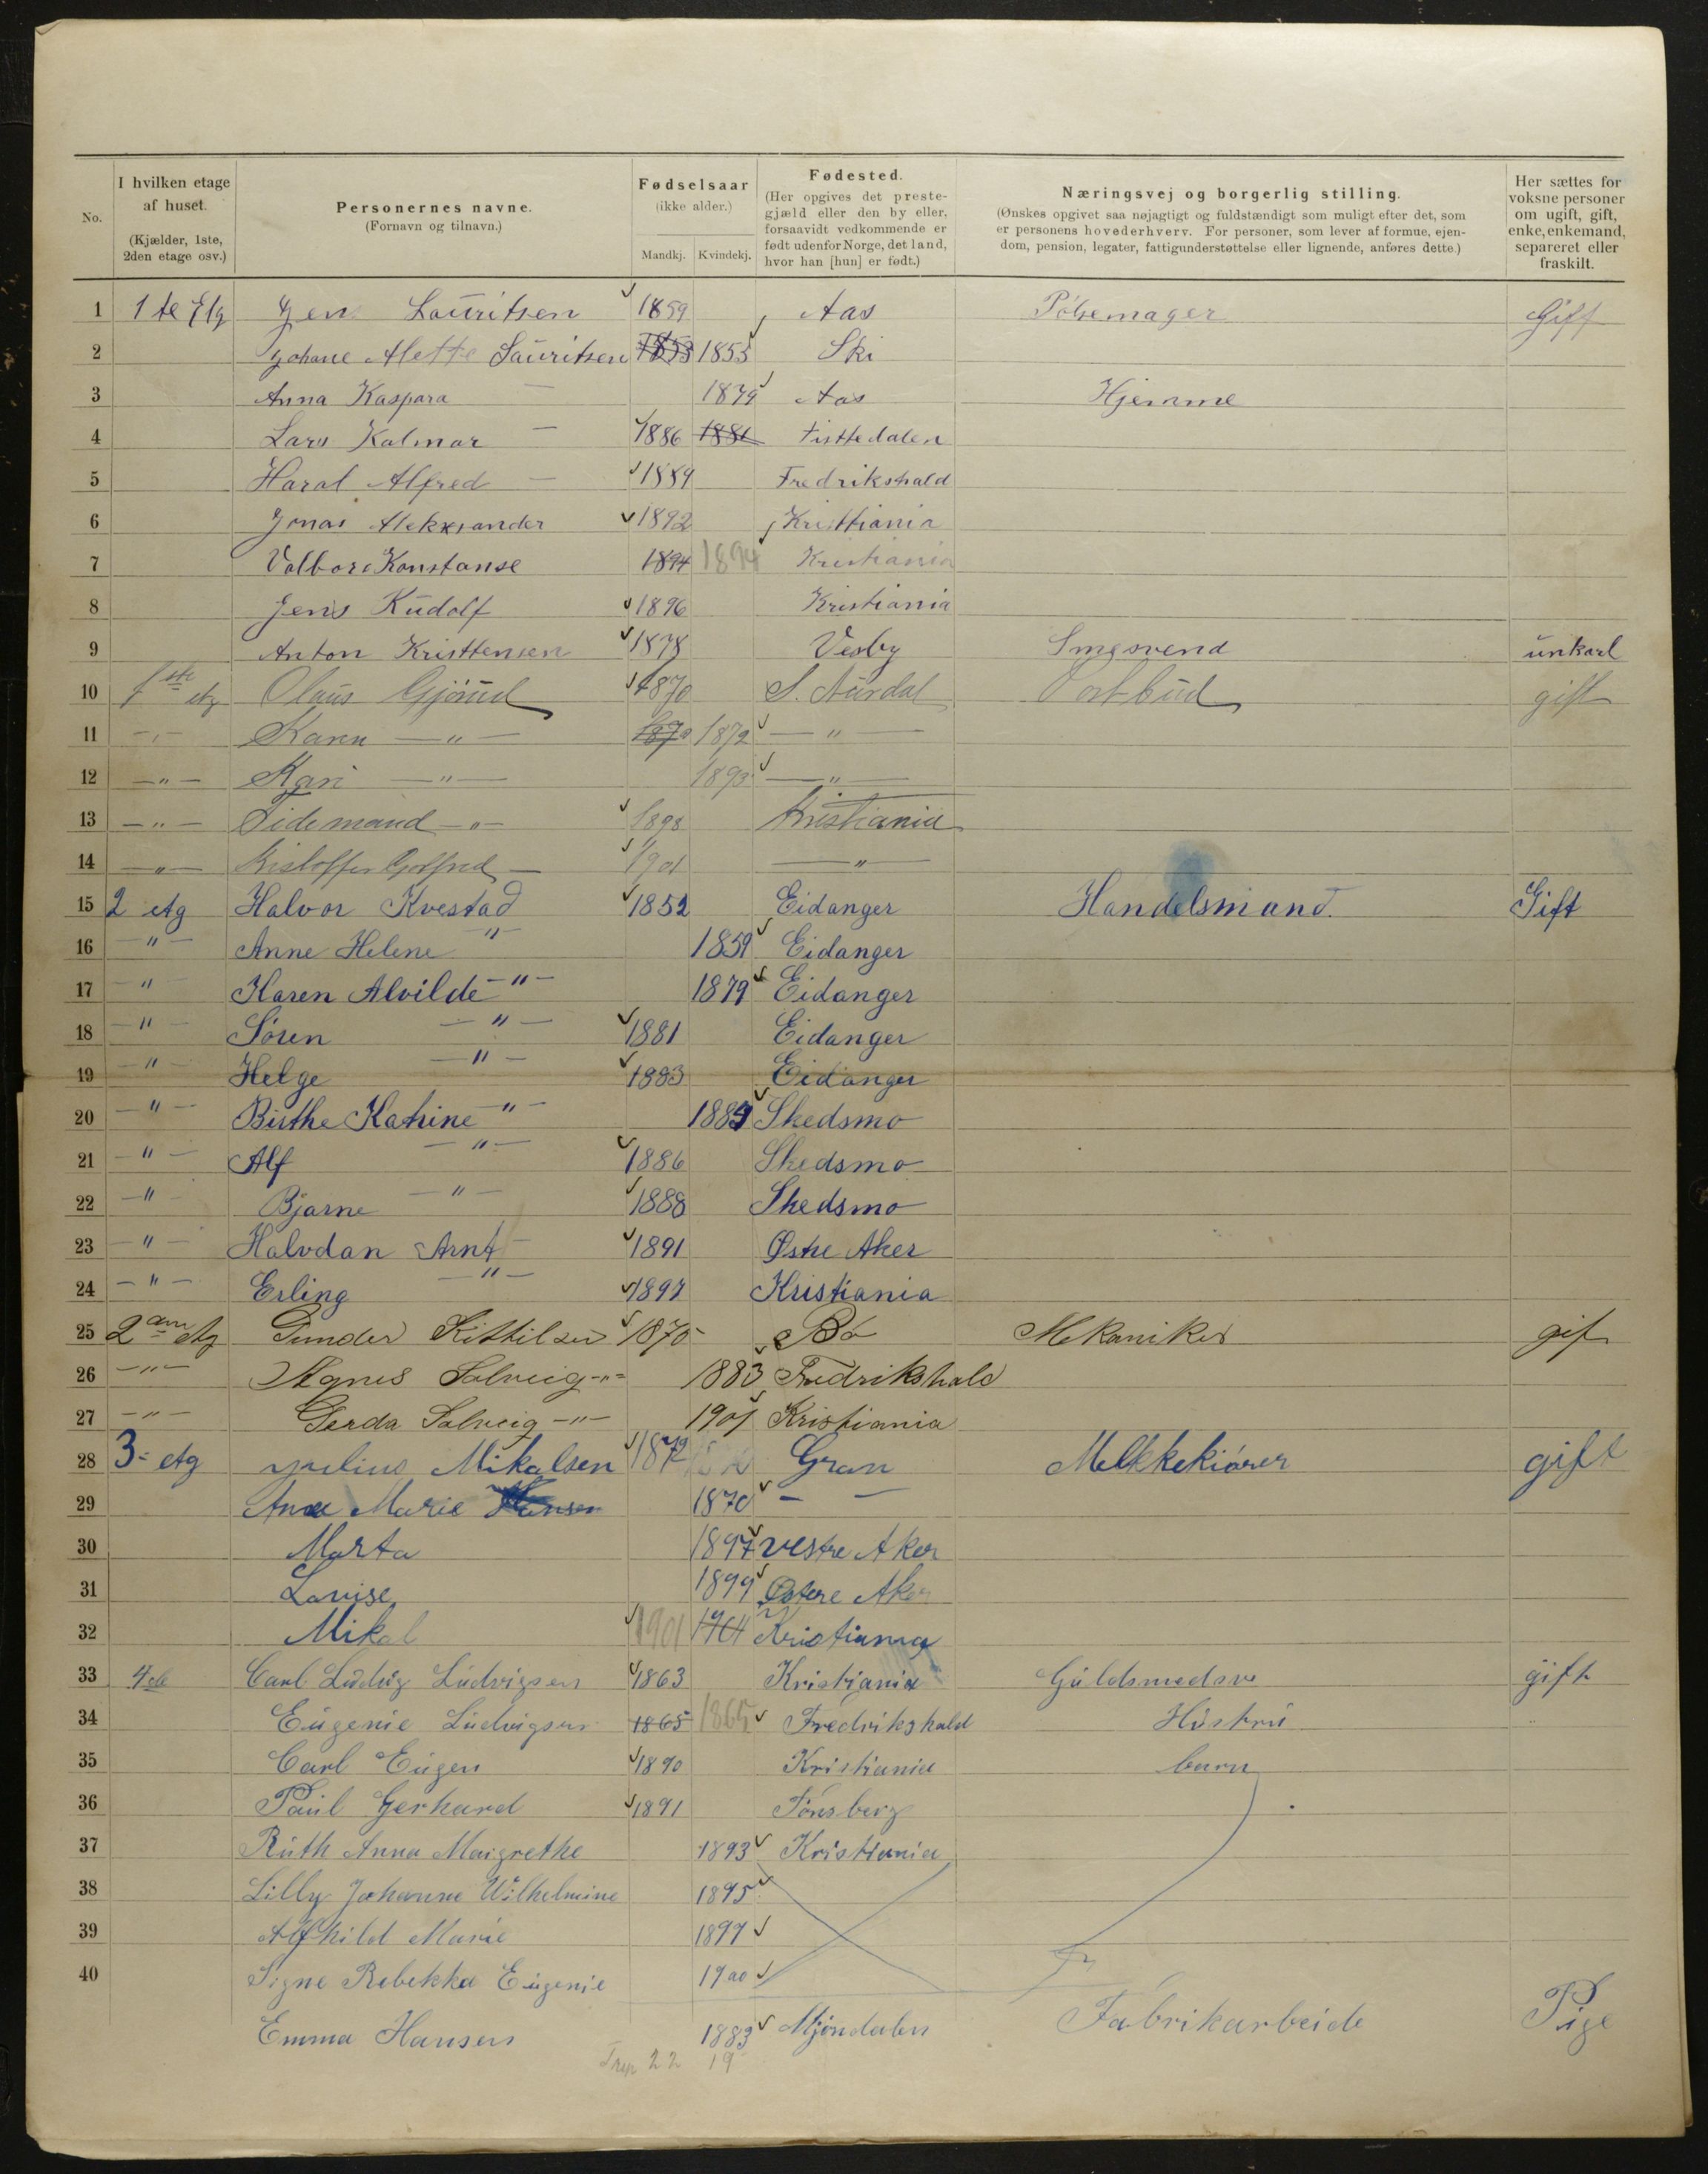 No.
I hvilken etage af huset. (Kjælder, 1ste, 2den etage osv.)
Personernes navne. (Fornavn og tilnavn.)
Fødselsaar (ikke alder.) Mandkj. Kvindekj.
Fødested. (Her opgives det prestegjæld eller den by eller, forsaavidt vedkommende er født udenfor Norge, det land, hvor han [hun] er født.)
Næringsvej og borgerlig stilling. (Ønskes opgivet saa nøjagtigt og fuldstændigt som muligt efter det, som er personens hovederhverv. For personer, som lever af formue, ejendom, pension, legater, fattigunderstøttelse eller lignende, anføres dette.)
Her sættes for voksne personer om ugift, gift, enke, enkemand, separeret eller fraskilt.
1 1 te Etg Jens Lauritsen 1859 Aas Pölsemager Gift
2 Johane Alette Lauritsen 1853 1853 Ski
3 Anna Kaspara — 1879 Aas Hjemme
4 Lars Kalmar — 1886 1886 Tisttedalen
5 Haral Alfred — 1889 Fredrikshald
6 Jonas Aleksander 1892 Kristtiania
7 Valbor Konstanse 1894 1894 Kristiania
8 Jens Rudolf 1896 Kristiania
9 Anton Kristtensen 1878 Vesby Smesvend unkarl
10 1ste etg Olaus Gjörud 1870 S. Aurdal Postbud gift
11 — " — Karen — " — 1870 1872 — " —
12 — " — Kari — " — 1893 — " —
13 — " — Tidemand — " — 1898 Kristiania
14 — " — Kristoffer Gotfred — 1901 — " —
15 2 etg Halvor Kvestad 1852 Eidanger Handelsmand. Gift
16 — " — Anne Helene " 1859 Eidanger
17 — " — Karen Alvilde — " — 1879 Eidanger
18 — " — Sören — " — 1881 Eidanger
19 — " — Helge — " — 1883 Eidanger
20 — " — Birthe Katrine — " — 1885 Skedsmo
21 — " — Alf — " — 1886 Skedsmo
22 — " — Bjarne — " — 1888 Skedsmo
23 — " — Halvdan Arnt — 1891 Østre Aker
24 — " — Erling — " — 1897 Kristiania
25 2 etg Gunder Kittilsen 1875 Bö Mekaniker gift
26 — " — Agnes Solveig — " — 1883 Fredrikshald
27 — " — Gerda Solveig — " — 1901 Kristiania
28 3 etg Julius Mikalsen 1872 Gran Melkkekiörer gift
29 Anne Marie Hansen 1870 — —
30 Marta 1897 vestre Aker
31 Lovise 1899 Østere Aker
32 Mikal 1901 1901 Kristiania
33 4de Carl Ludvig Ludvigsen 1863 Kristiania Guldsmedsv gift
34 Eugenie Ludvigsen 1865 1865 Fredrikshald Hustru
35 Carl Eugen 1890 Kristiania barn
36 Paul Gerhard 1891 Tönsberg
37 Ruth Anna Maigrethe 1893 Kristiania
38 Lilly Johanne Wilhelmine 1895
39 Alfhild Marie 1897
40 Signe Rebekka Eugenie 1900
Emma Hansen 1883 Mjöndalen Fabrikarbeide Pige
22 19